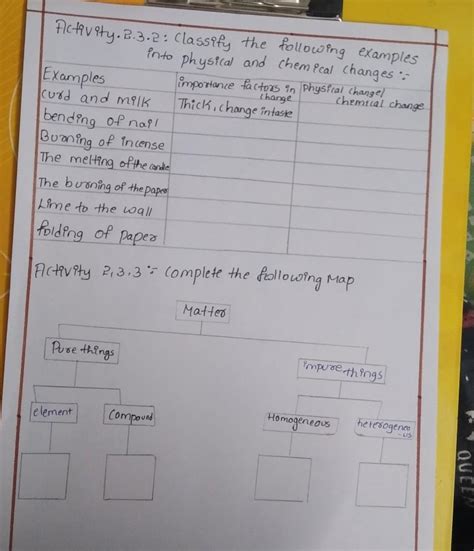 Activity.2.3.2: Classify the following examples
into physical and chemical changes :-
Examples
importance factors in change
Physical change/ chemical change
curd and milk
Thick, change in taste
bending of nail
Burning of incense
The melting of the candle
The burning of the paper
Lime to the wall
folding of paper
Activity 2.3.3 :- Complete the following Map
Matter
Pure things
impure things
element
Compound
Homogeneous
heterogeneo
-us
QUEEN